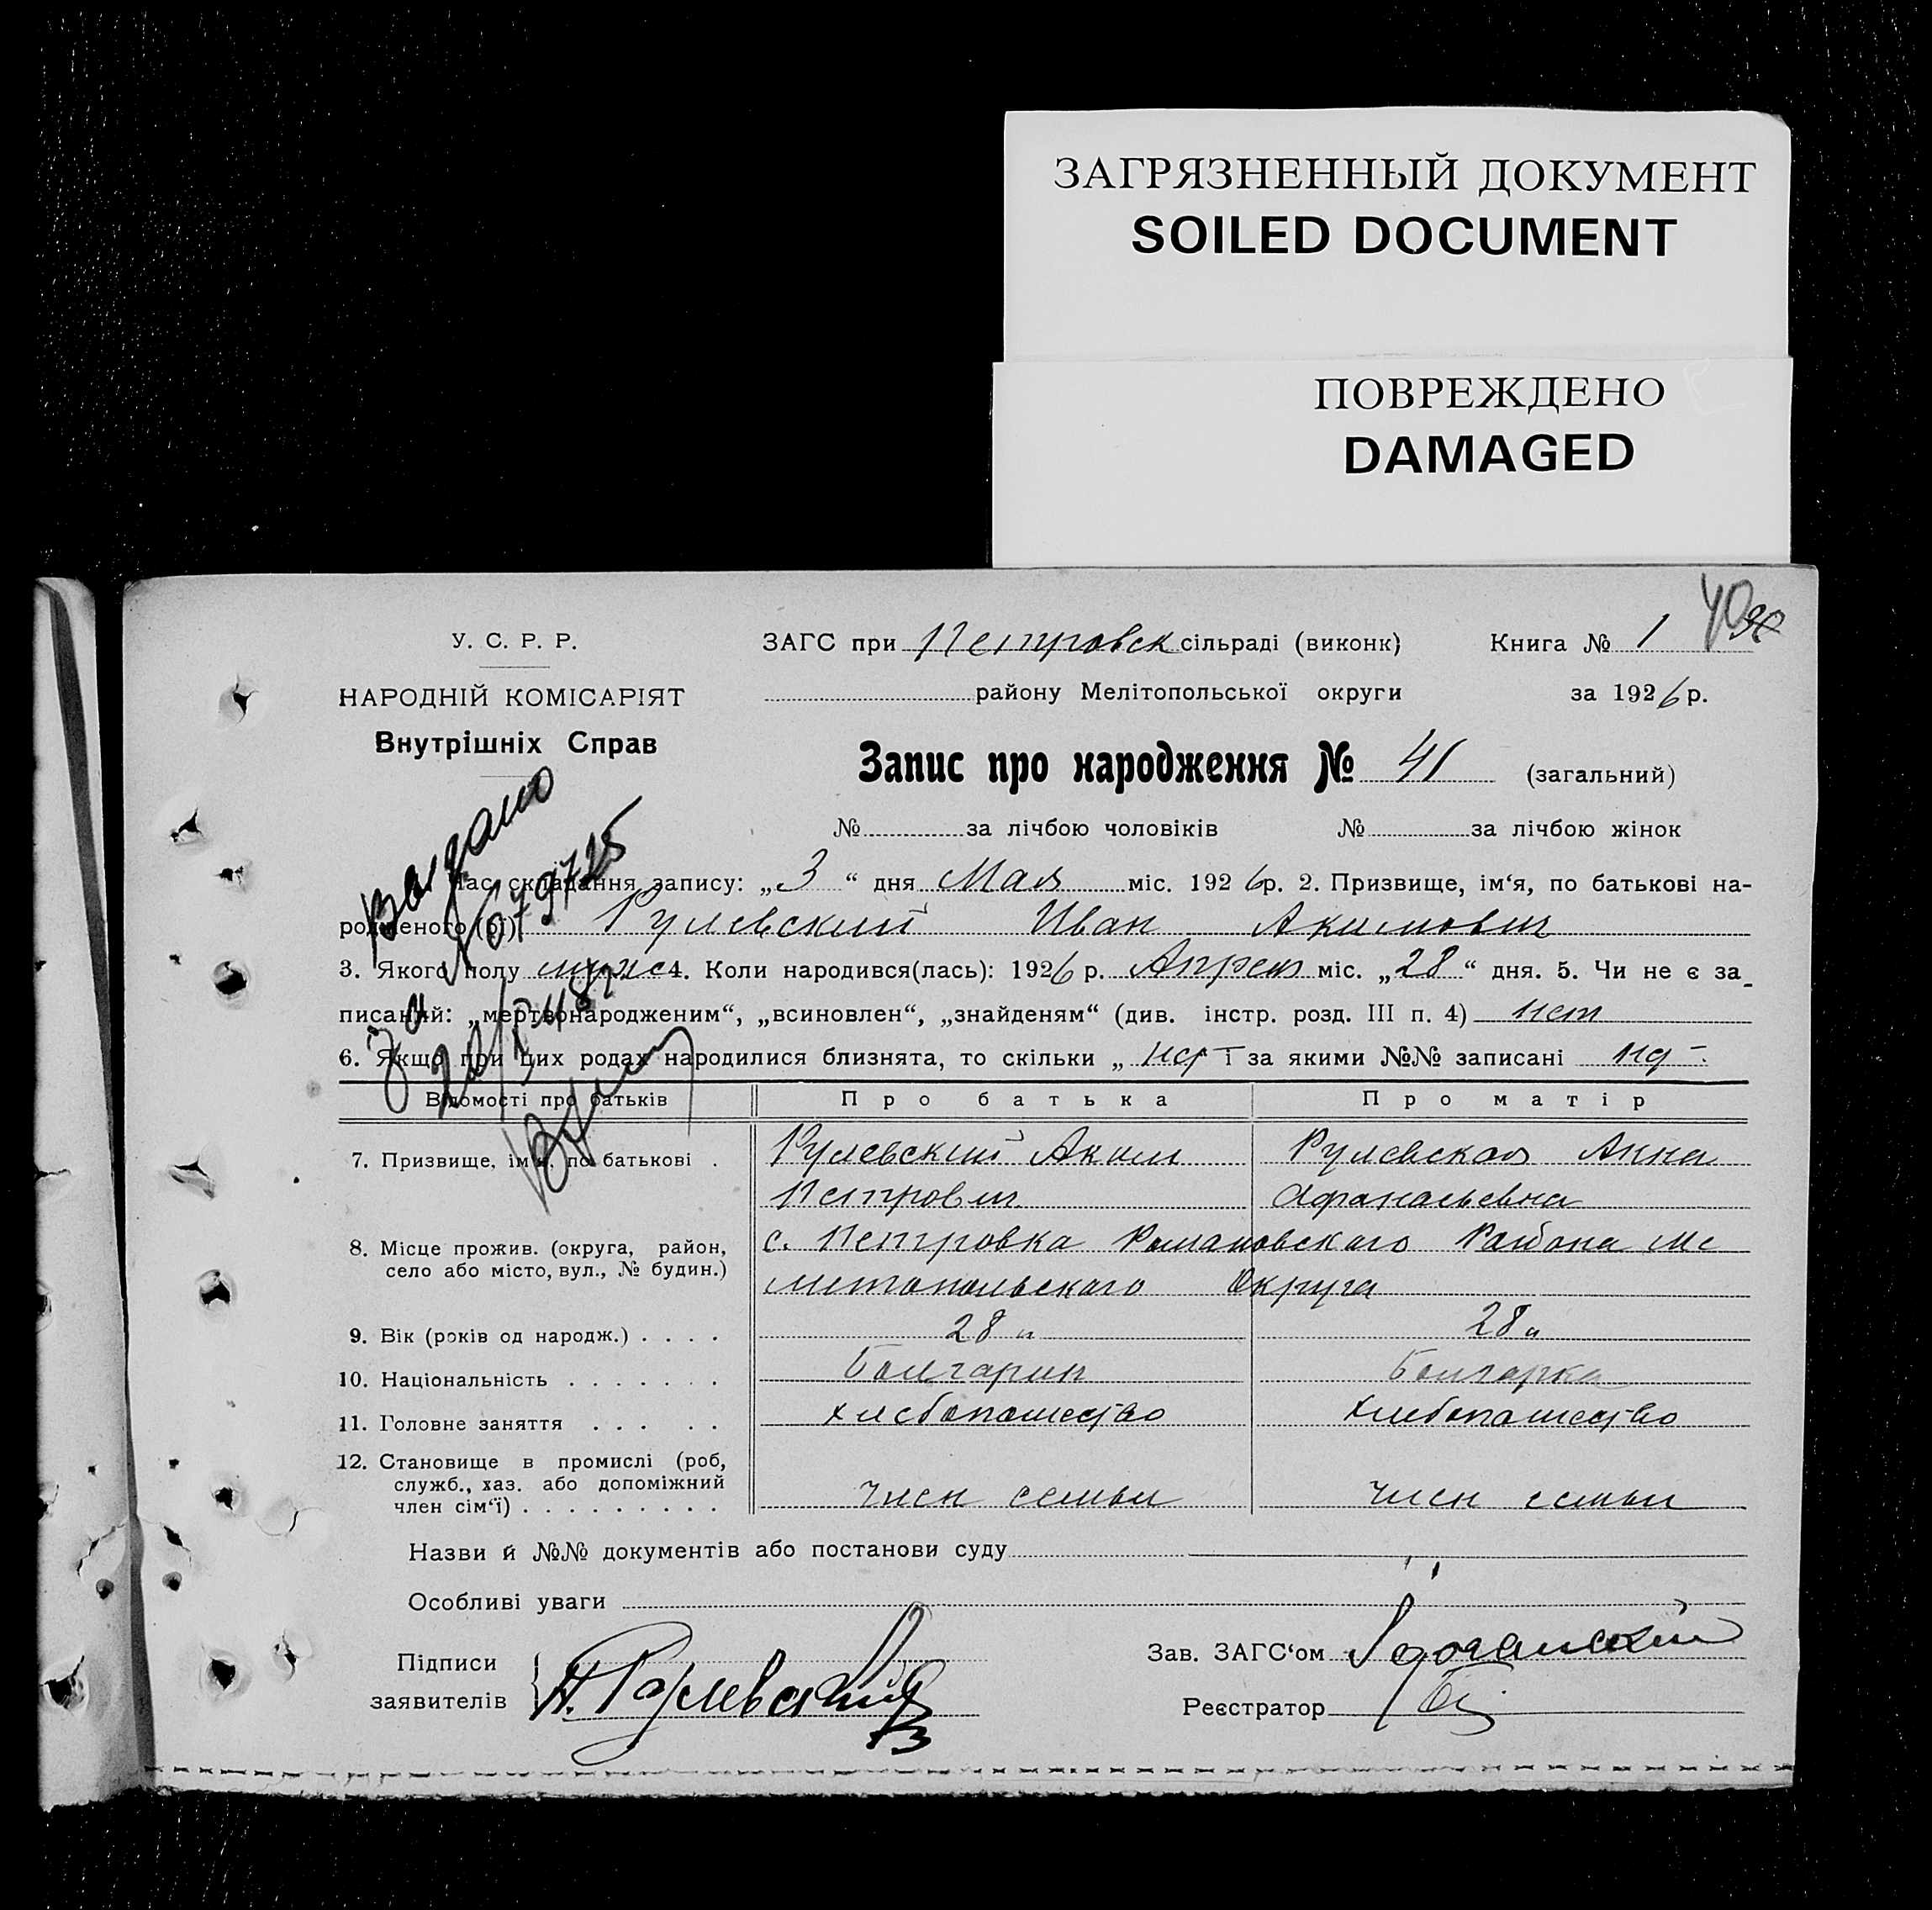 ЗАГРЯЗНЕННЫЙ ДОКУМЕНТ
SOILED DOCUMENT
ПОВРЕЖДЕНО
DAMAGED
40
У. С. Р. Р.
НАРОДНІЙ КОМІСАРІЯТ
Внутрішніх Справ
ЗАГС при Петровск сільраді (виконк) Книга № 1
району Мелітопольської округи за 1926 р.
Запис про народження № 41 (загальний)
№ за лічбою чоловіків № за лічбою жінок
Час складання запису: „3“ дня Мая міс. 1926 р. 2. Призвище, ім‘я, по батькові на-
родженого (ої) Рулевский Иван Акимович
3. Якого полу муж 4. Коли народився(лась): 1926 р. Апреля міс. „28“ дня. 5. Чи не є за-
писаний: „мертвонародженим“, „всиновлен“, „знайденям“ (див. інстр. розд. III п. 4) нет
6. Якщо при цих родах народилися близнята, то скільки „ нет і за якими №№ записані нет
Выдано
679725
Відомості про батьків Про батька Про матір
7. Призвище, ім‘я, по батькові . Рулевский Аким Рулевская Анна
Петрович Афанасьевна
8. Місце прожив. (округа, район, с. Петровка Романовского Района Ме
село або місто, вул., № будин.) литопольского Округа
9. Вік (років од народж.) . . . . 28 л 28 л
10. Національність . . . . . . . Болгарин Болгарка
11. Головне заняття . . . . . Хлебопашество Хлебопашество
12. Становище в промислі (роб,
служб., хаз. або допоміжний
член сім‘ї) . . . . . . . . . член семьи член семьи
Назви й №№ документів або постанови суду
Особливі уваги
Підписи
заявителів А. Рулевский
Зав. ЗАГС‘ом
Реєстратор